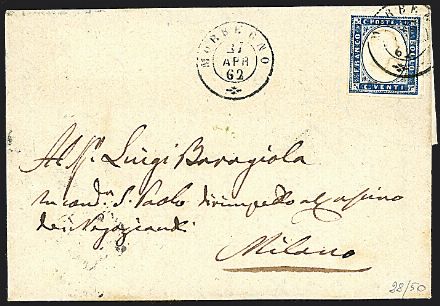 MORBEGNO
APR
62
C. POSTE
FRANCO
BOLLO
C. VENTI
MORBEGNO
62
Al Sr. Luigi Baragiola
in cond.a S. Paolo dirimpetto al Casino
dei Negozianti
Milano
22/50